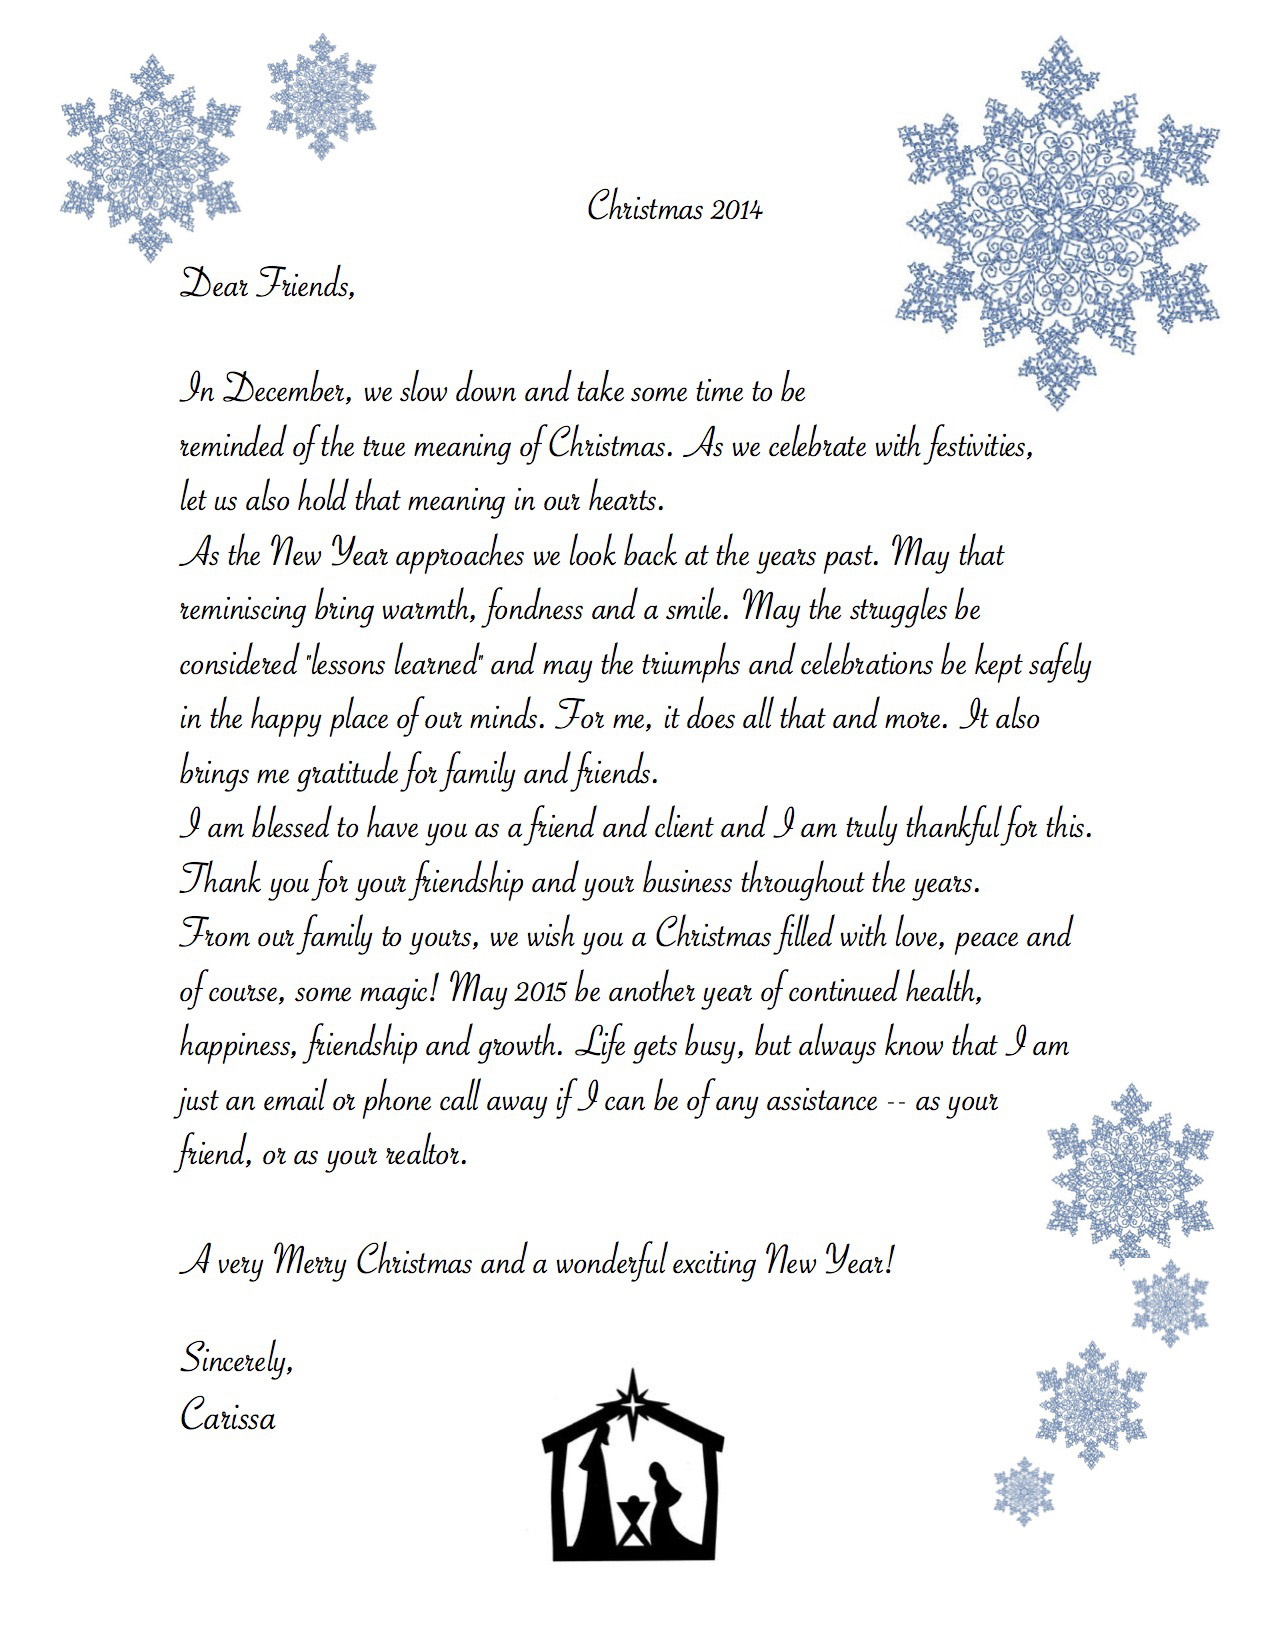 Christmas 2014
Dear Friends,
In December, we slow down and take some time to be
reminded of the true meaning of Christmas. As we celebrate with festivities,
let us also hold that meaning in our hearts.
As the New Year approaches we look back at the years past. May that
reminiscing bring warmth, fondness and a smile. May the struggles be
considered "lessons learned" and may the triumphs and celebrations be kept safely
in the happy place of our minds. For me, it does all that and more. It also
brings me gratitude for family and friends.
I am blessed to have you as a friend and client and I am truly thankful for this.
Thank you for your friendship and your business throughout the years.
From our family to yours, we wish you a Christmas filled with love, peace and
of course, some magic! May 2015 be another year of continued health,
happiness, friendship and growth. Life gets busy, but always know that I am
just an email or phone call away if I can be of any assistance -- as your
friend, or as your realtor.
A very Merry Christmas and a wonderful exciting New Year!
Sincerely,
Carissa